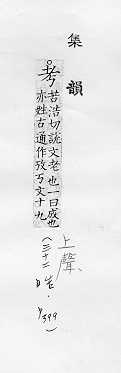 集韻
考苦浩切說文老也一曰成也
亦姓古通作攷丂文十九
上聲、
(三十二皓. 399)